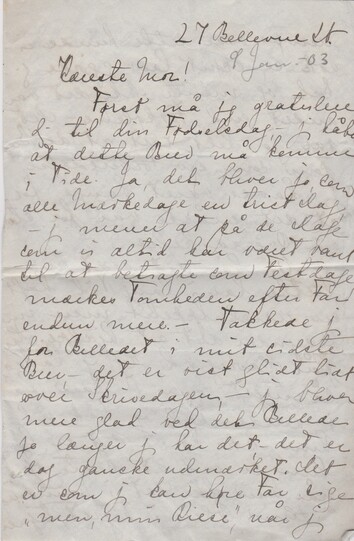 27 Bellevue St.
9 Jan. 03
Kæreste Mor!
Først må jeg gratulere
dig til din Fødselsdag - j håber
at dette Brev må komme
i Tide. Ja, det bliver jo som
alle Mærkedage en trist dag
- j mener at på de dage
som vi altid har været vant
til at betragte som Festdage
mærkes Tomheden efter Far
endnu mere. - Takkede j
for Billedet i mit sidste
Brev - det er vist glidt lidt
over Skrivedagen, - j bliver
mere glad ved det Billede
jo længer j har det - det er
dog ganske udmærket. Det
er som j kan høre Far sige
"men, min Pige", når j